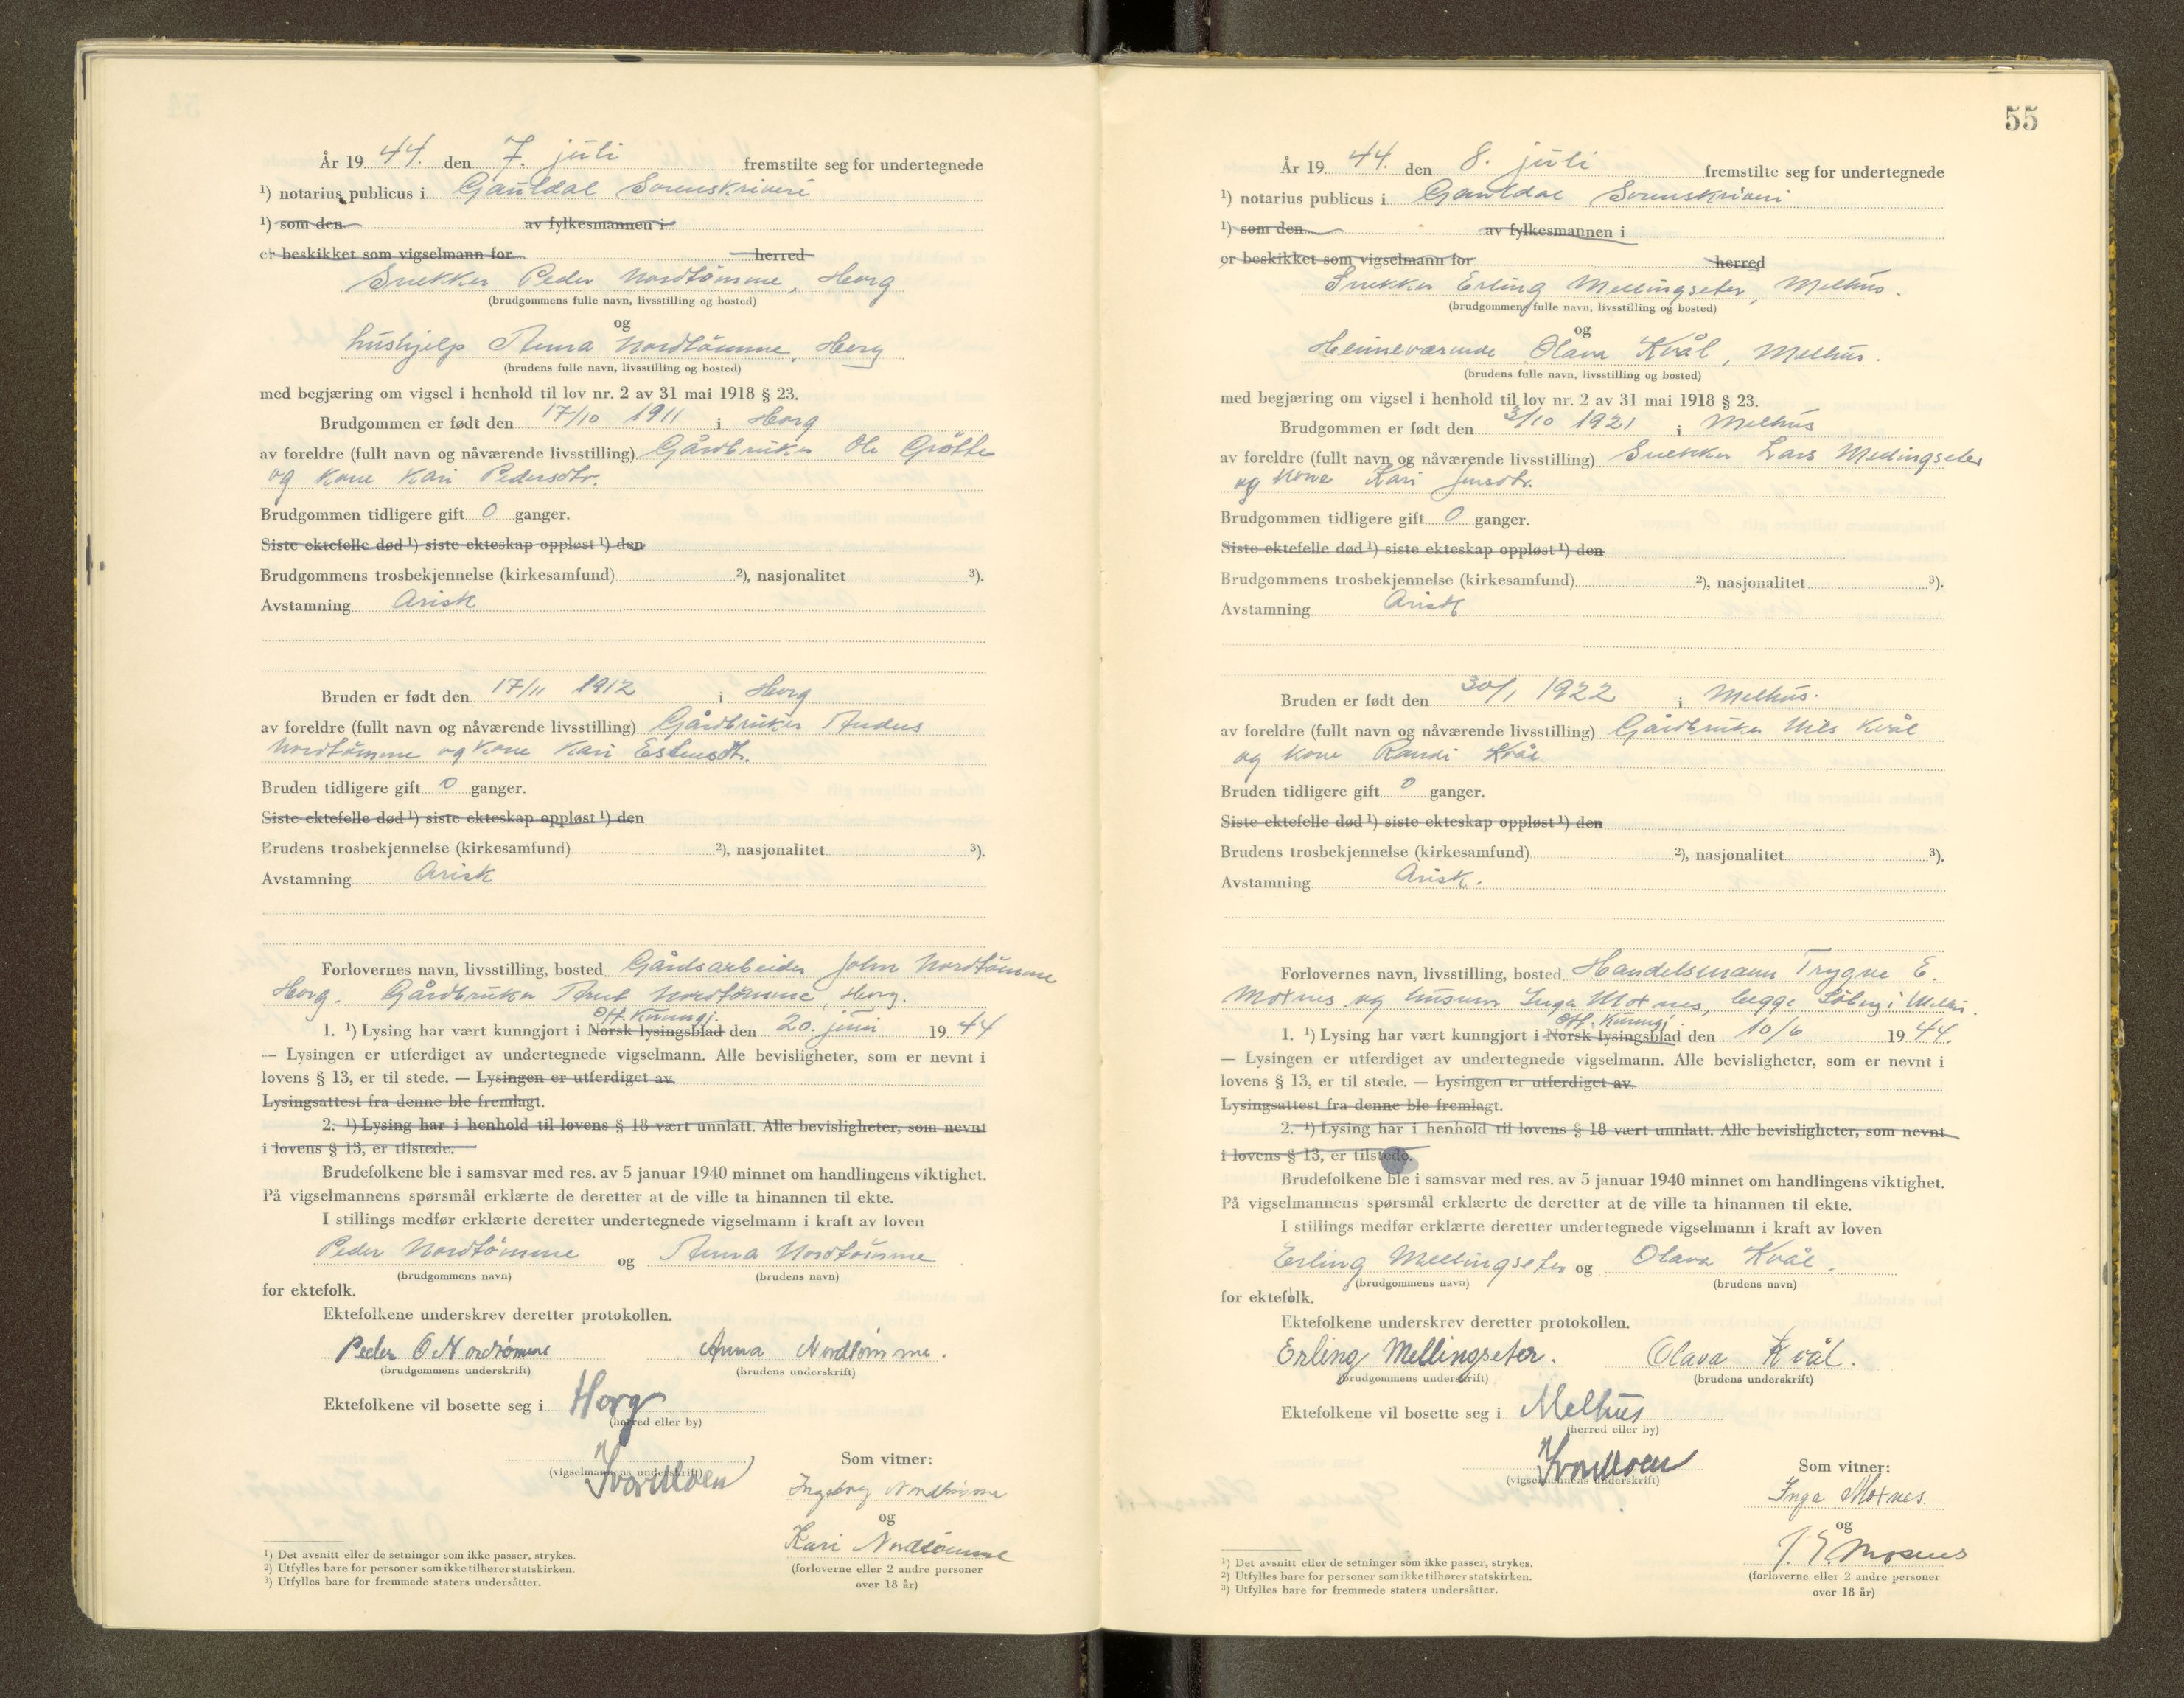 År 19 44. den 7. juli fremstilte seg for undertegnede
¹) notarius publicus i Gauldal Sorenskriveri
¹) som den av fylkesmannen i
er beskikket som vigselmann for herred
Snekker Peder Nordtømme, Horg
(brudgommens fulle navn, livsstilling og bosted)
og
hushjelp Anna Nordtømme, Horg
(brudens fulle navn, livsstilling og bosted)
med begjæring om vigsel i henhold til lov nr. 2 av 31 mai 1918 § 23.
Brudgommen er født den 17/10 1911 i Horg
av foreldre (fullt navn og nåværende livsstilling) Gårdbruker Ole Grøtte
og kone Kari Pedersdtr.
Brudgommen tidligere gift 0 ganger.
Siste ektefelle død ¹) siste ekteskap oppløst ¹) den
Brudgommens trosbekjennelse (kirkesamfund) ²), nasjonalitet ³).
Avstamning Arisk
Bruden er født den 17/11 1912 i Horg
av foreldre (fullt navn og nåværende livsstilling) Gårdbruker Anders
Nordtømme og kone Kari Estensdtr.
Bruden tidligere gift 0 ganger.
Siste ektefelle død ¹) siste ekteskap oppløst ¹) den
Brudens trosbekjennelse (kirkesamfund) ²), nasjonalitet ³).
Avstamning Arisk
Forlovernes navn, livsstilling, bosted Gårdsarbeider John Nordtømme
Horg. Gårdbruker Arnt Nordtømme, Horg.
Off. Kunngj.
1. ¹) Lysing har vært kunngjort i Norsk lysingsblad den 20. juni 19 44
— Lysingen er utferdiget av undertegnede vigselmann. Alle bevisligheter, som er nevnt i
lovens § 13, er til stede. — Lysingen er utferdiget av
Lysingsattest fra denne ble fremlagt.
2. ¹) Lysing har i henhold til lovens § 18 vært unnlatt. Alle bevisligheter, som nevnt
i lovens § 13, er tilstede.
Brudefolkene ble i samsvar med res. av 5 januar 1940 minnet om handlingens viktighet.
På vigselmannens spørsmål erklærte de deretter at de ville ta hinannen til ekte.
I stillings medfør erklærte deretter undertegnede vigselmann i kraft av loven
Peder Nordtømme og Anna Nordtømme
(brudgommens navn) (brudens navn)
for ektefolk.
Ektefolkene underskrev deretter protokollen.
Peder O Nordtømme Anna Nordtømme.
(brudgommens underskrift) (brudens underskrift)
Ektefolkene vil bosette seg i Horg
(herred eller by)
Som vitner:
(vigselmannens underskrift)
Ingeborg Nordtømme
og
Kari Nordtømme
(forloverne eller 2 andre personer
over 18 år)
¹) Det avsnitt eller de setninger som ikke passer, strykes.
²) Utfylles bare for personer som ikke tilhører statskirken.
³) Utfylles bare for fremmede staters undersåtter.
55
År 19 44. den 8. juli fremstilte seg for undertegnede
¹) notarius publicus i Gauldal Sorenskriveri
¹) som den av fylkesmannen i
er beskikket som vigselmann for herred
Snekker Erling Mellingseter, Melhus.
(brudgommens fulle navn, livsstilling og bosted)
og
Heimeværende Olava Kvål, Melhus.
(brudens fulle navn, livsstilling og bosted)
med begjæring om vigsel i henhold til lov nr. 2 av 31 mai 1918 § 23.
Brudgommen er født den 3/10 1921 i Melhus
av foreldre (fullt navn og nåværende livsstilling) Snekker Lars Mellingseter
og kone Kari Jensdtr.
Brudgommen tidligere gift 0 ganger.
Siste ektefelle død ¹) siste ekteskap oppløst ¹) den
Brudgommens trosbekjennelse (kirkesamfund) ²), nasjonalitet ³).
Avstamning Arisk
Bruden er født den 30/1 1922 i Melhus.
av foreldre (fullt navn og nåværende livsstilling) Gårdbruker Nils Kvål
og kone Randi Kvål
Bruden tidligere gift 0 ganger.
Siste ektefelle død ¹) siste ekteskap oppløst ¹) den
Brudens trosbekjennelse (kirkesamfund) ²), nasjonalitet ³).
Avstamning Arisk.
Forlovernes navn, livsstilling, bosted Handelsmann Trygve E.
Moxnes og husmor Inga Moxnes, begge Søberg i Melhus.
Off. Kunngj.
1. ¹) Lysing har vært kunngjort i Norsk lysingsblad den 10/6 19 44.
— Lysingen er utferdiget av undertegnede vigselmann. Alle bevisligheter, som er nevnt i
lovens § 13, er til stede. — Lysingen er utferdiget av
Lysingsattest fra denne ble fremlagt.
2. ¹) Lysing har i henhold til lovens § 18 vært unnlatt. Alle bevisligheter, som nevnt
i lovens § 13, er tilstede.
Brudefolkene ble i samsvar med res. av 5 januar 1940 minnet om handlingens viktighet.
På vigselmannens spørsmål erklærte de deretter at de ville ta hinannen til ekte.
I stillings medfør erklærte deretter undertegnede vigselmann i kraft av loven
Erling Mellingseter og Olava Kvål.
(brudgommens navn) (brudens navn)
for ektefolk.
Ektefolkene underskrev deretter protokollen.
Erling Mellingseter. Olava Kvål.
(brudgommens underskrift) (brudens underskrift)
Ektefolkene vil bosette seg i Melhus
(herred eller by)
(vigselmannens underskrift)
Som vitner:
Inga Moxnes.
og
T. E. Moxnes
(forloverne eller 2 andre personer
over 18 år)
¹) Det avsnitt eller de setninger som ikke passer, strykes.
²) Utfylles bare for personer som ikke tilhører statskirken.
³) Utfylles bare for fremmede staters undersåtter.